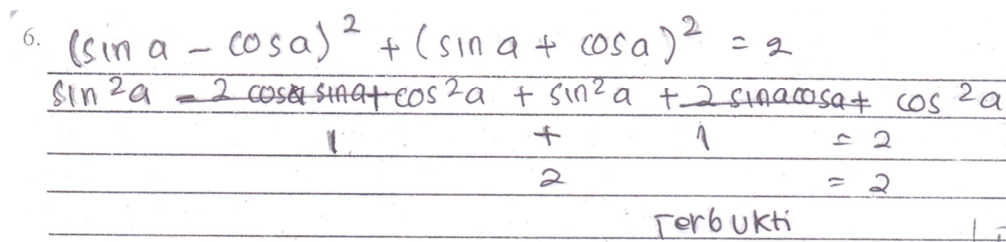 6. (sin a - cos a)² + (sin a + cos a)² = 2
sin²a - 2 cosa sina + cos²a + sin²a + 2 sina cosa + cos²a
1 + 1 = 2
2 = 2
Terbukti